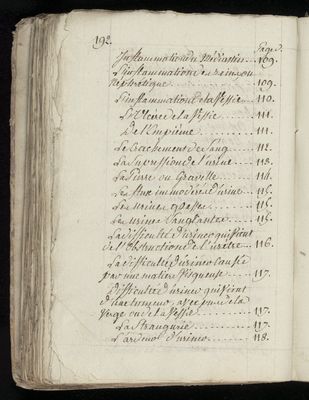 192.
Pages.
Inflammation du Médiastin... 109.
L'inflammation des Reins ou
Néphrétique......... 109.
L'inflammation de la Vessie... 110.
L'Ulcère de la Vessie...... 111.
De l'Empième........ 111.
Le Crachement de Sang..... 112.
La Supression de l'urine.... 113.
La Pierre ou Gravelle..... 114.
Le flux immodéré d'urine... 115.
Les urines
Les urines Sanglantes..... 115.
La difficulté d'uriner qui vient
de l'Obstruction de l'urètre... 116.
La difficulté d'uriner causée
par une matière Visqueuse..... 117.
Difficulté d'uriner qui vient
d'une tumeur, avec pus de la
Verge ou de la Vessie........ 117.
La Strangurie.......... 117.
L'ardeur d'urine....... 118.